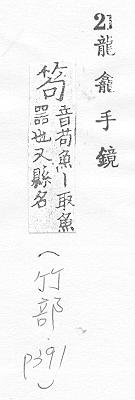 21龍龕手鏡
笱
音苟魚丨取魚
器也又縣名
(竹部.
p391)